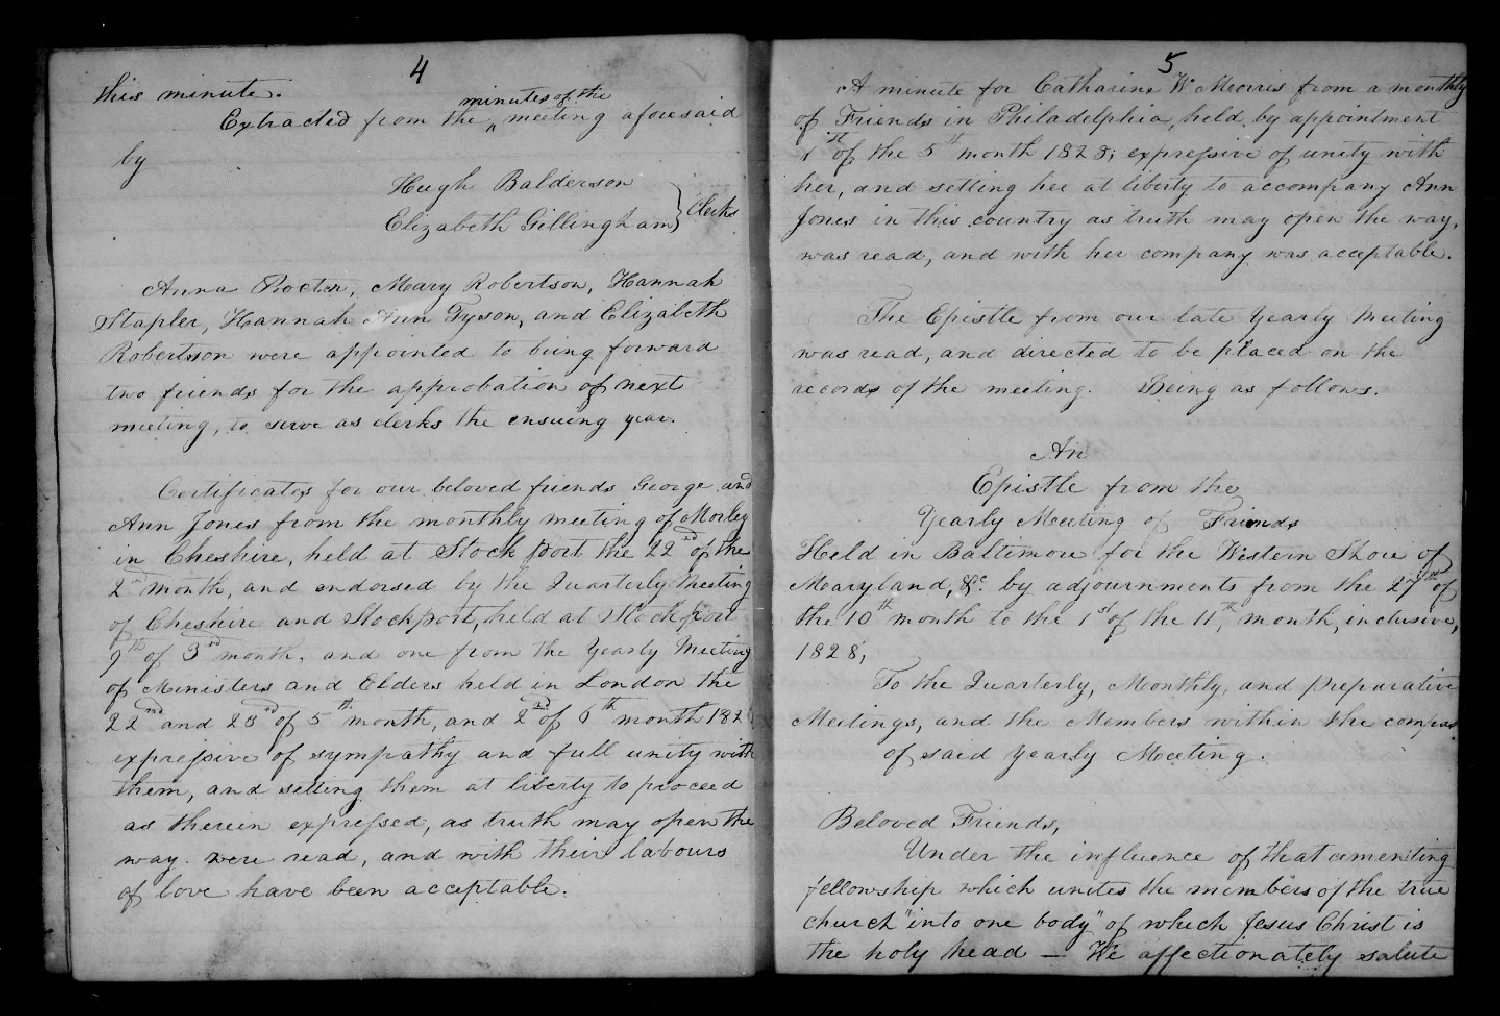 4
this minute.
minutes of the
Extracted from the ^ meeting aforesaid
by
Hugh Balderson
Elizabeth Gillingham } Clerks
Anna Procter, Mary Robertson, Hannah
Stapler, Hannah Ann Tyson, and Elizabeth
Robertson were appointed to bring forward
two friends for the approbation of next
meeting, to serve as clerks the ensuing year.
Certificates for our beloved friends George and
Ann Jones from the monthly meeting of Morley
in Cheshire, held at Stockport the 22nd of the
2nd month, and endorsed by the Quarterly Meeting
of Cheshire and Stockport, held at Stockport
9th of 3rd month, and one from the Yearly Meeting
of Ministers and Elders held in London the
22nd and 23rd of 5th month, and 2nd of 6th month 182
expressive of sympathy and full unity with
them, and setting them at liberty to proceed
as therein expressed, as truth may open the
way. were read, and with their labours
of love have been acceptable.
5
A minute for Catharine W. Morris from a monthly
of Friends in Philadelphia, held by appointment
1st of the 5th month 1828; expressive of unity with
her, and setting her at liberty to accompany Ann
Jones in this country as truth may open the way,
was read, and with her company was acceptable.
The Epistle from our late Yearly Meeting
was read, and directed to be placed on the
records of the meeting. Being as follows.
An
Epistle from the
Yearly Meeting of Friends
Held in Baltimore for the Western Shore of
Maryland, &c. by adjournments from the 27th of
the 10th month to the 1st of the 11th, month, inclusive,
1828,
To the Quarterly, Monthly, and preparative
Meetings, and the Members within the compass
of said Yearly Meeting.
Beloved Friends,
Under the influence of that cementing
fellowship which unites the members of the true
church "into one body" of which Jesus Christ is
the holy head — We affectionately salute